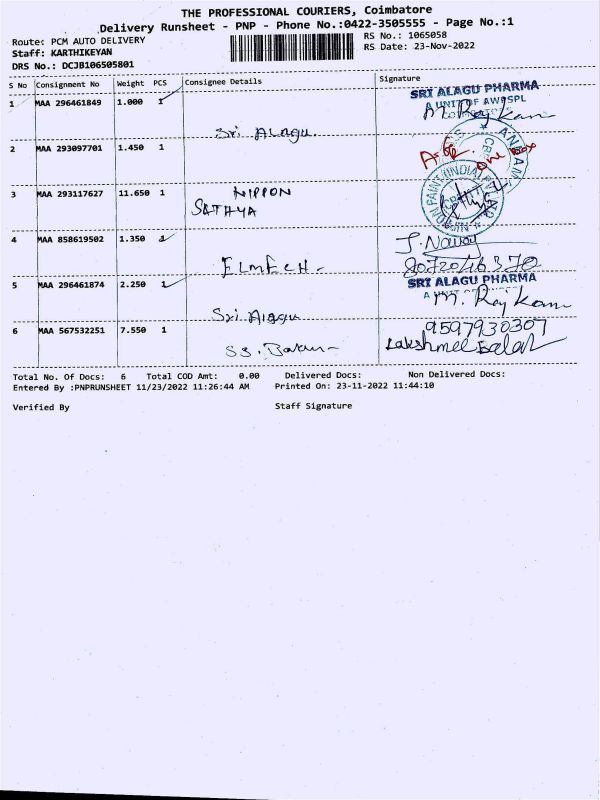 THE PROFESSIONAL COURIERS, Coimbatore
Delivery Runsheet - PNP - Phone No.:0422-3505555 - Page No.:1
Route: PCM AUTO DELIVERY
RS No.: 1065058
Staff: KARTHIKEYAN
RS Date: 23-Nov-2022
DRS No.: DCJB106505801
S No Consignment No Weight PCS Consignee Details Signature
1 MAA 296461849 1.000 1
SRI ALAGU PHARMA
A UNIT OF AWPSPL
Sri. Alagu
2 MAA 293097701 1.450 1
one Box
3 MAA 293117627 11.650 1 NIPPON
SATHYA
4 MAA 858619502 1.350 1
ELMECH -
5 MAA 296461874 2.250 1
SRI ALAGU PHARMA
Sri. Alagu
6 MAA 567532251 7.550 1
9597930307
Total No. Of Docs: 6 Total COD Amt: 0.00 Delivered Docs: Non Delivered Docs:
Entered By :PNPRUNSHEET 11/23/2022 11:26:44 AM Printed On: 23-11-2022 11:44:10
Verified By Staff Signature